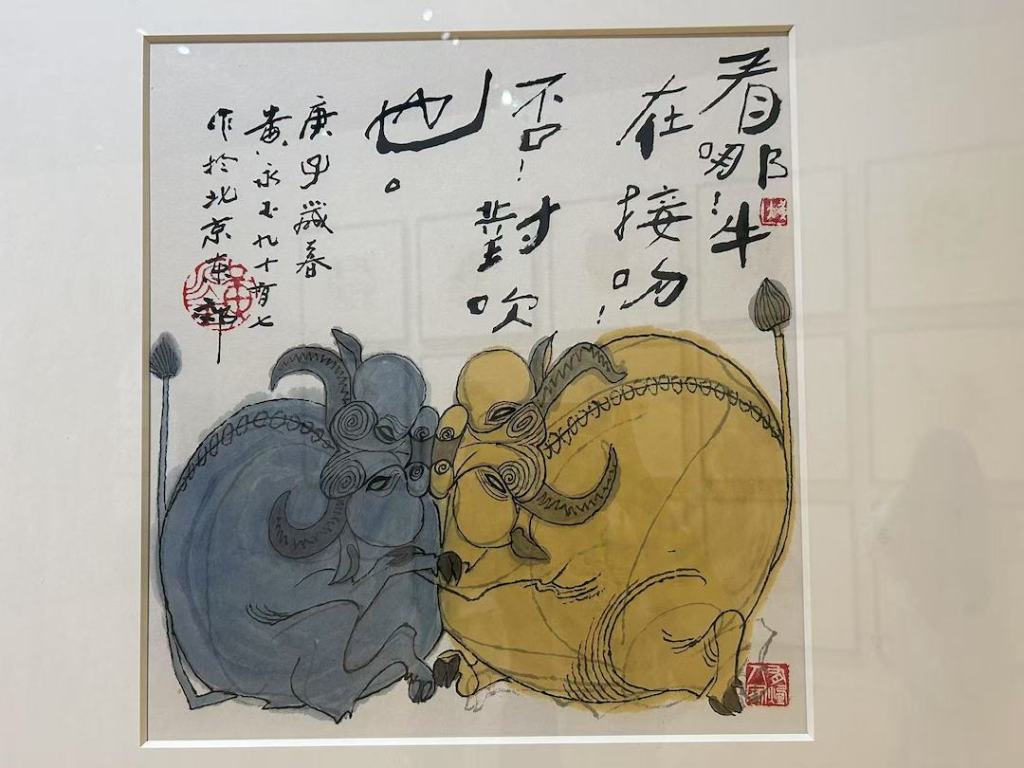 看哪!牛
在接吻!
否!對吹
也。
庚子歲春
黄永玉九十有七
作於北京東郊